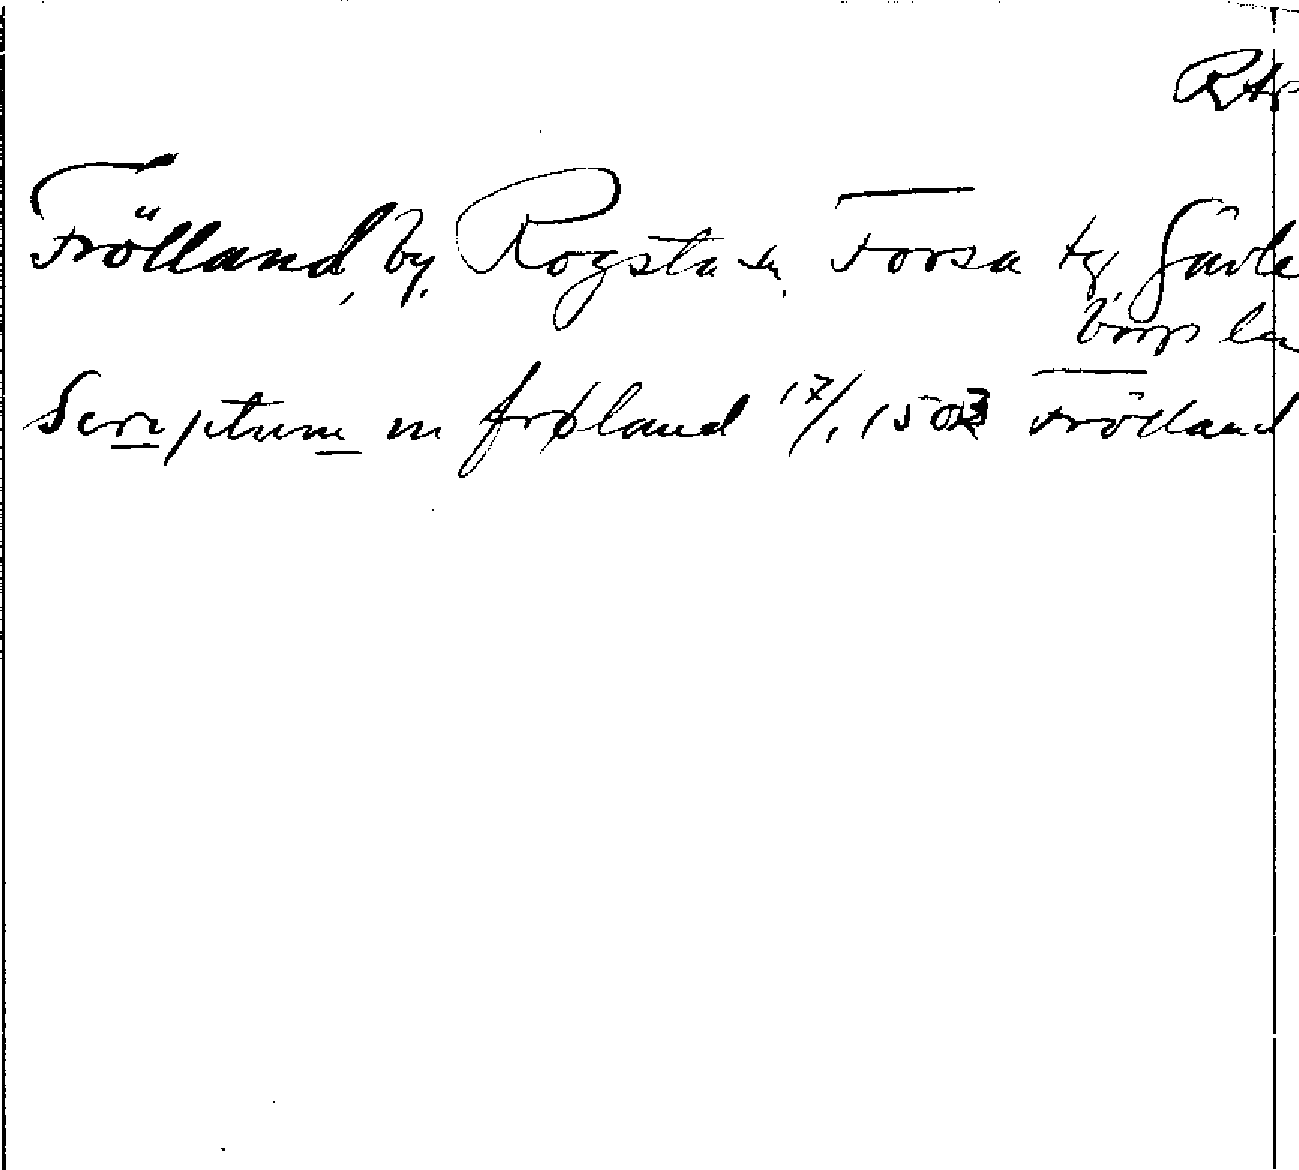 Rap
Frölland, by, Rogsta sn, Forsa tg, Gävle
borgs län
Scriptum in frøland 17/1 1503 Frölland